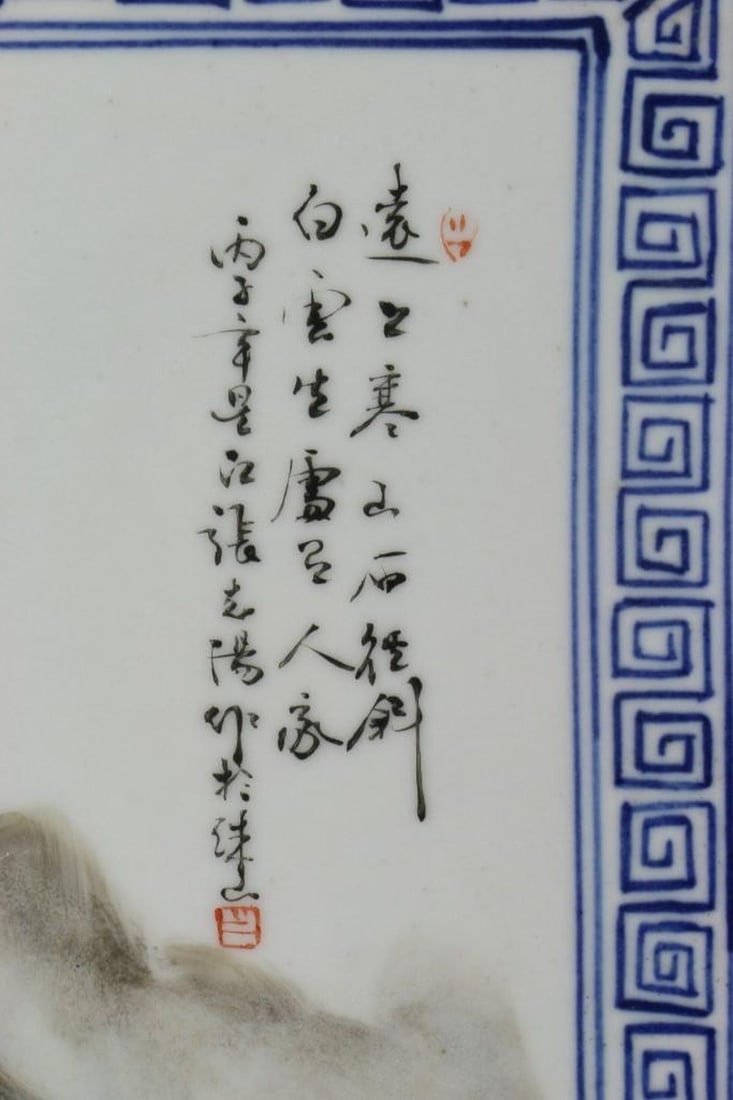 遠上寒山石徑斜
白雲生處有人家
丙子年昰江張志湯作於珠山